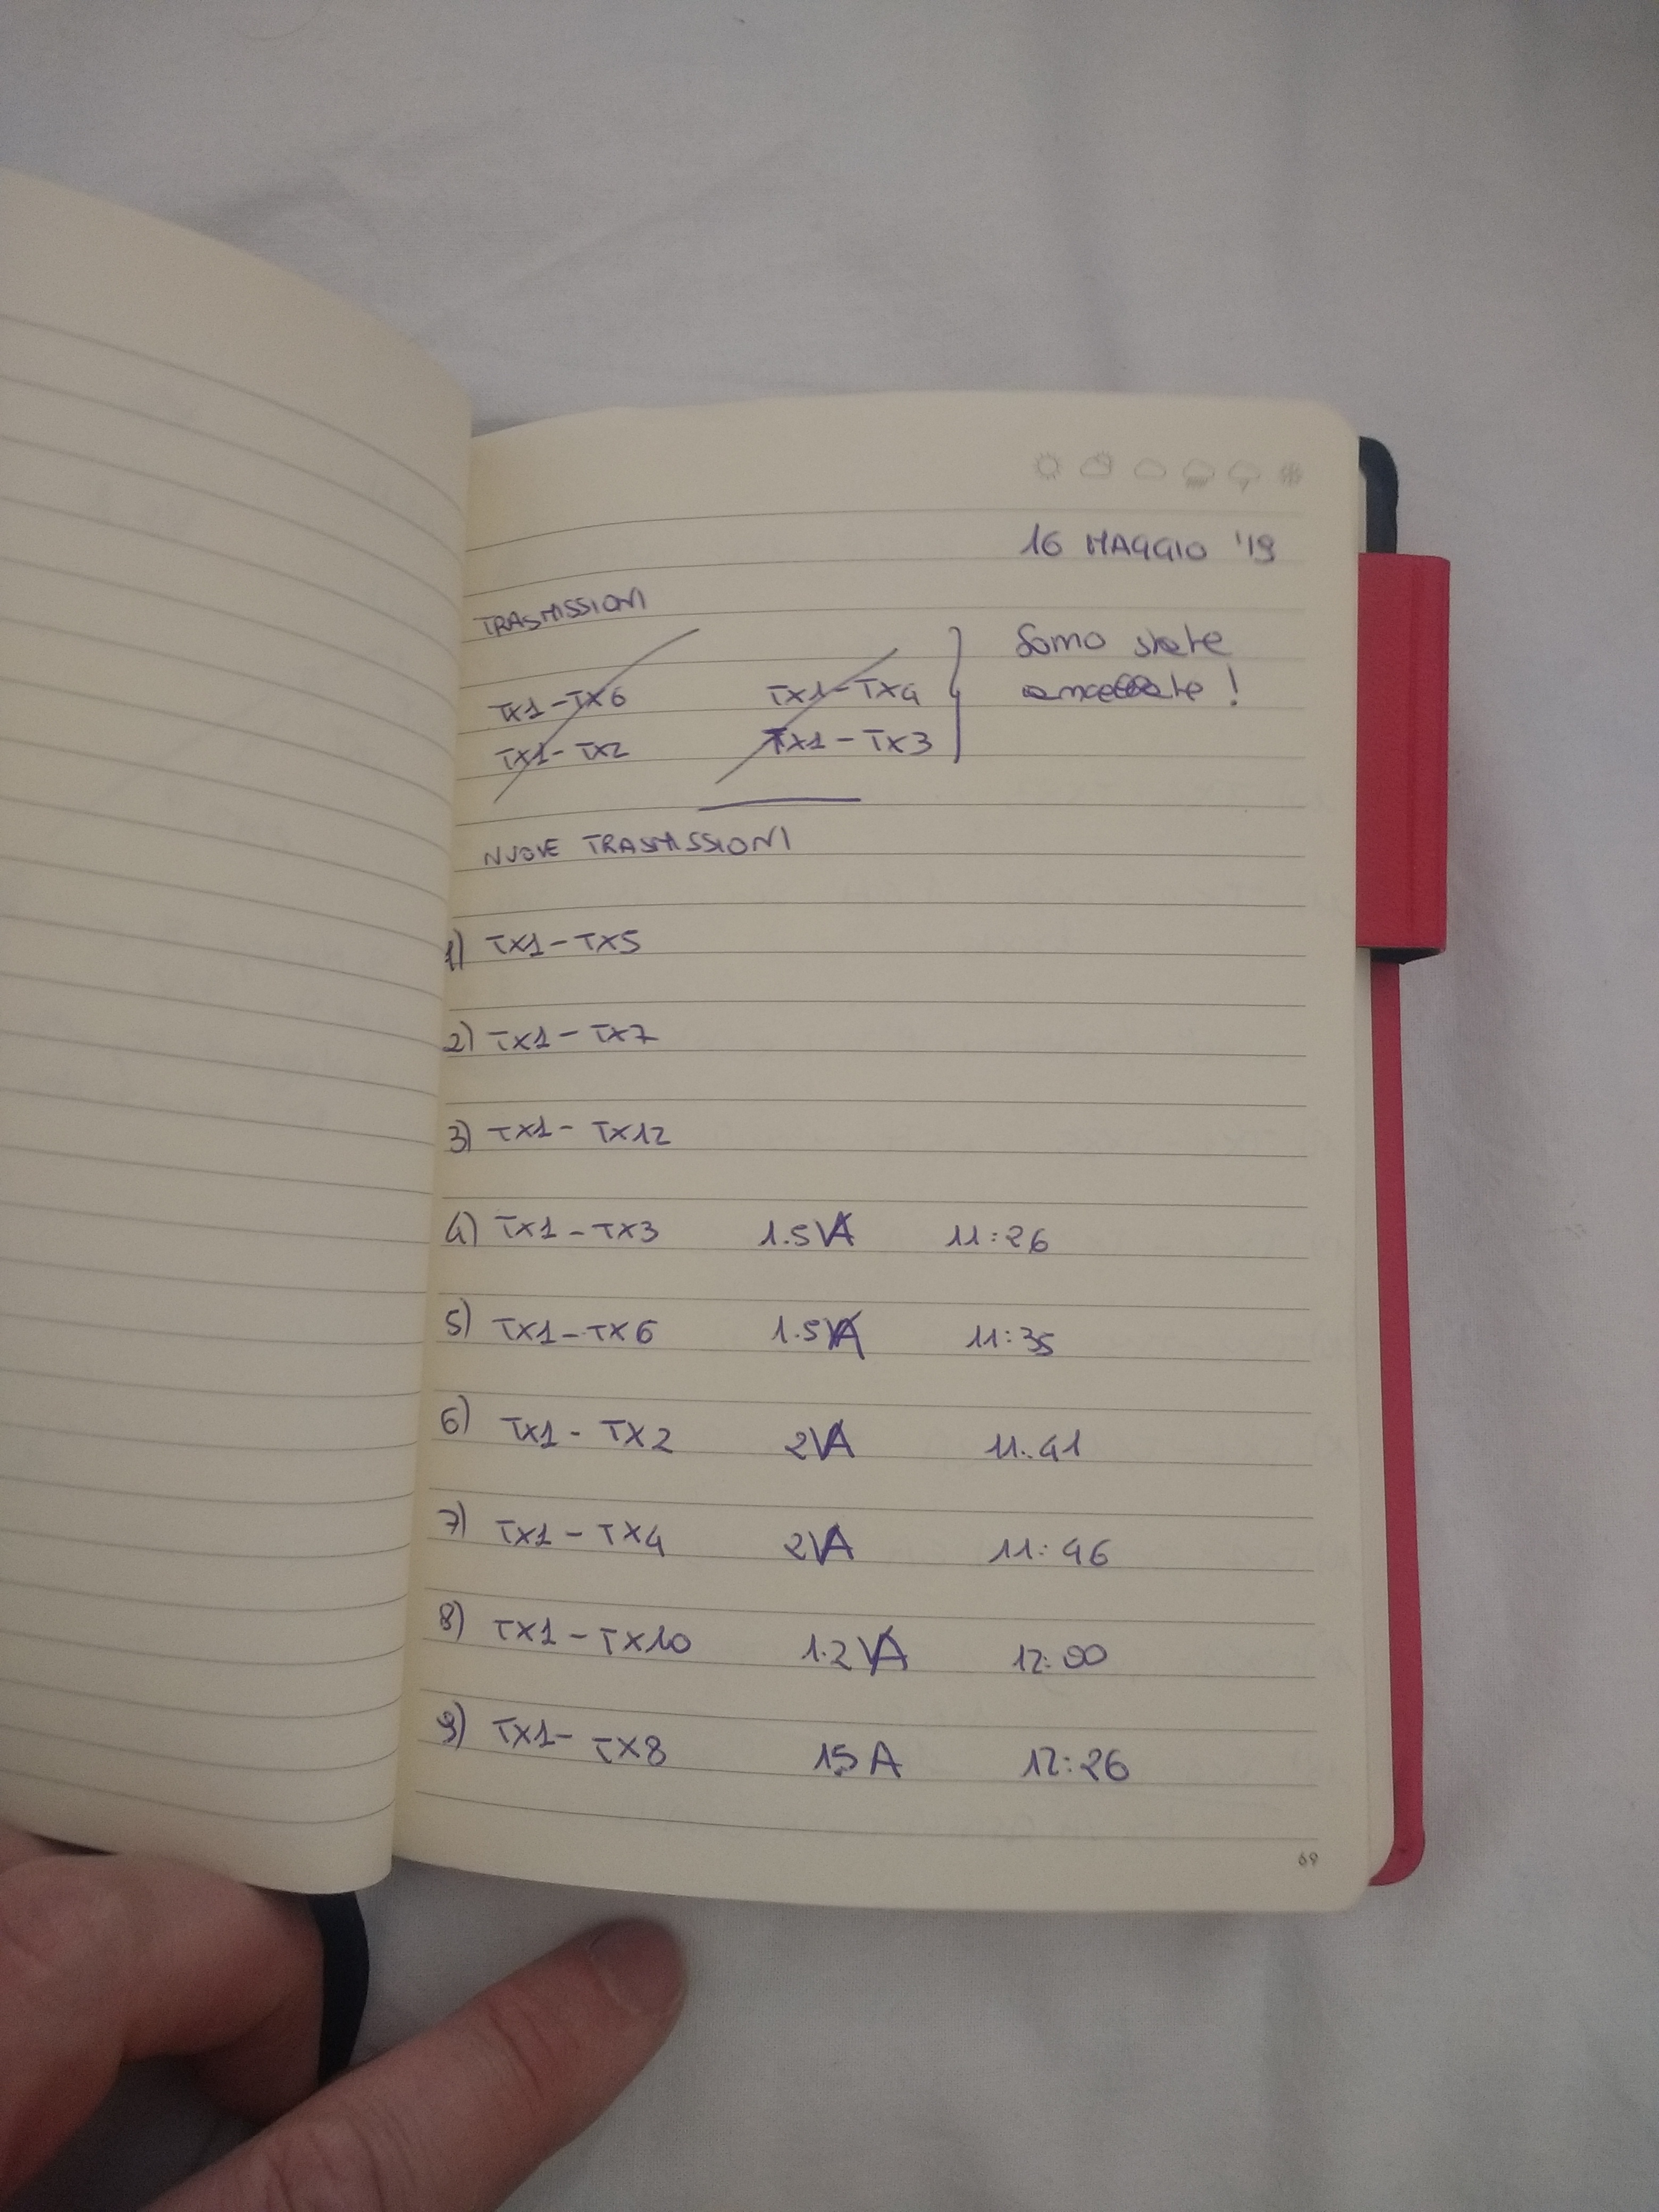 16 MAGGIO '19
TRASMISSIONI
TX1-TX6 TX1-TX4
TX1-TX2 TX1-TX3
Sono state
cancellate!
NUOVE TRASMISSIONI
1) TX1-TX5
2) TX1-TX7
3) TX1-TX12
4) TX1-TX3 1.5A 11:26
5) TX1-TX6 1.5A 11:35
6) TX1-TX2 2A 11:41
7) TX1-TX4 2A 11:46
8) TX1-TX10 1.2A 12:00
9) TX1-TX8 1.5A 12:26
69